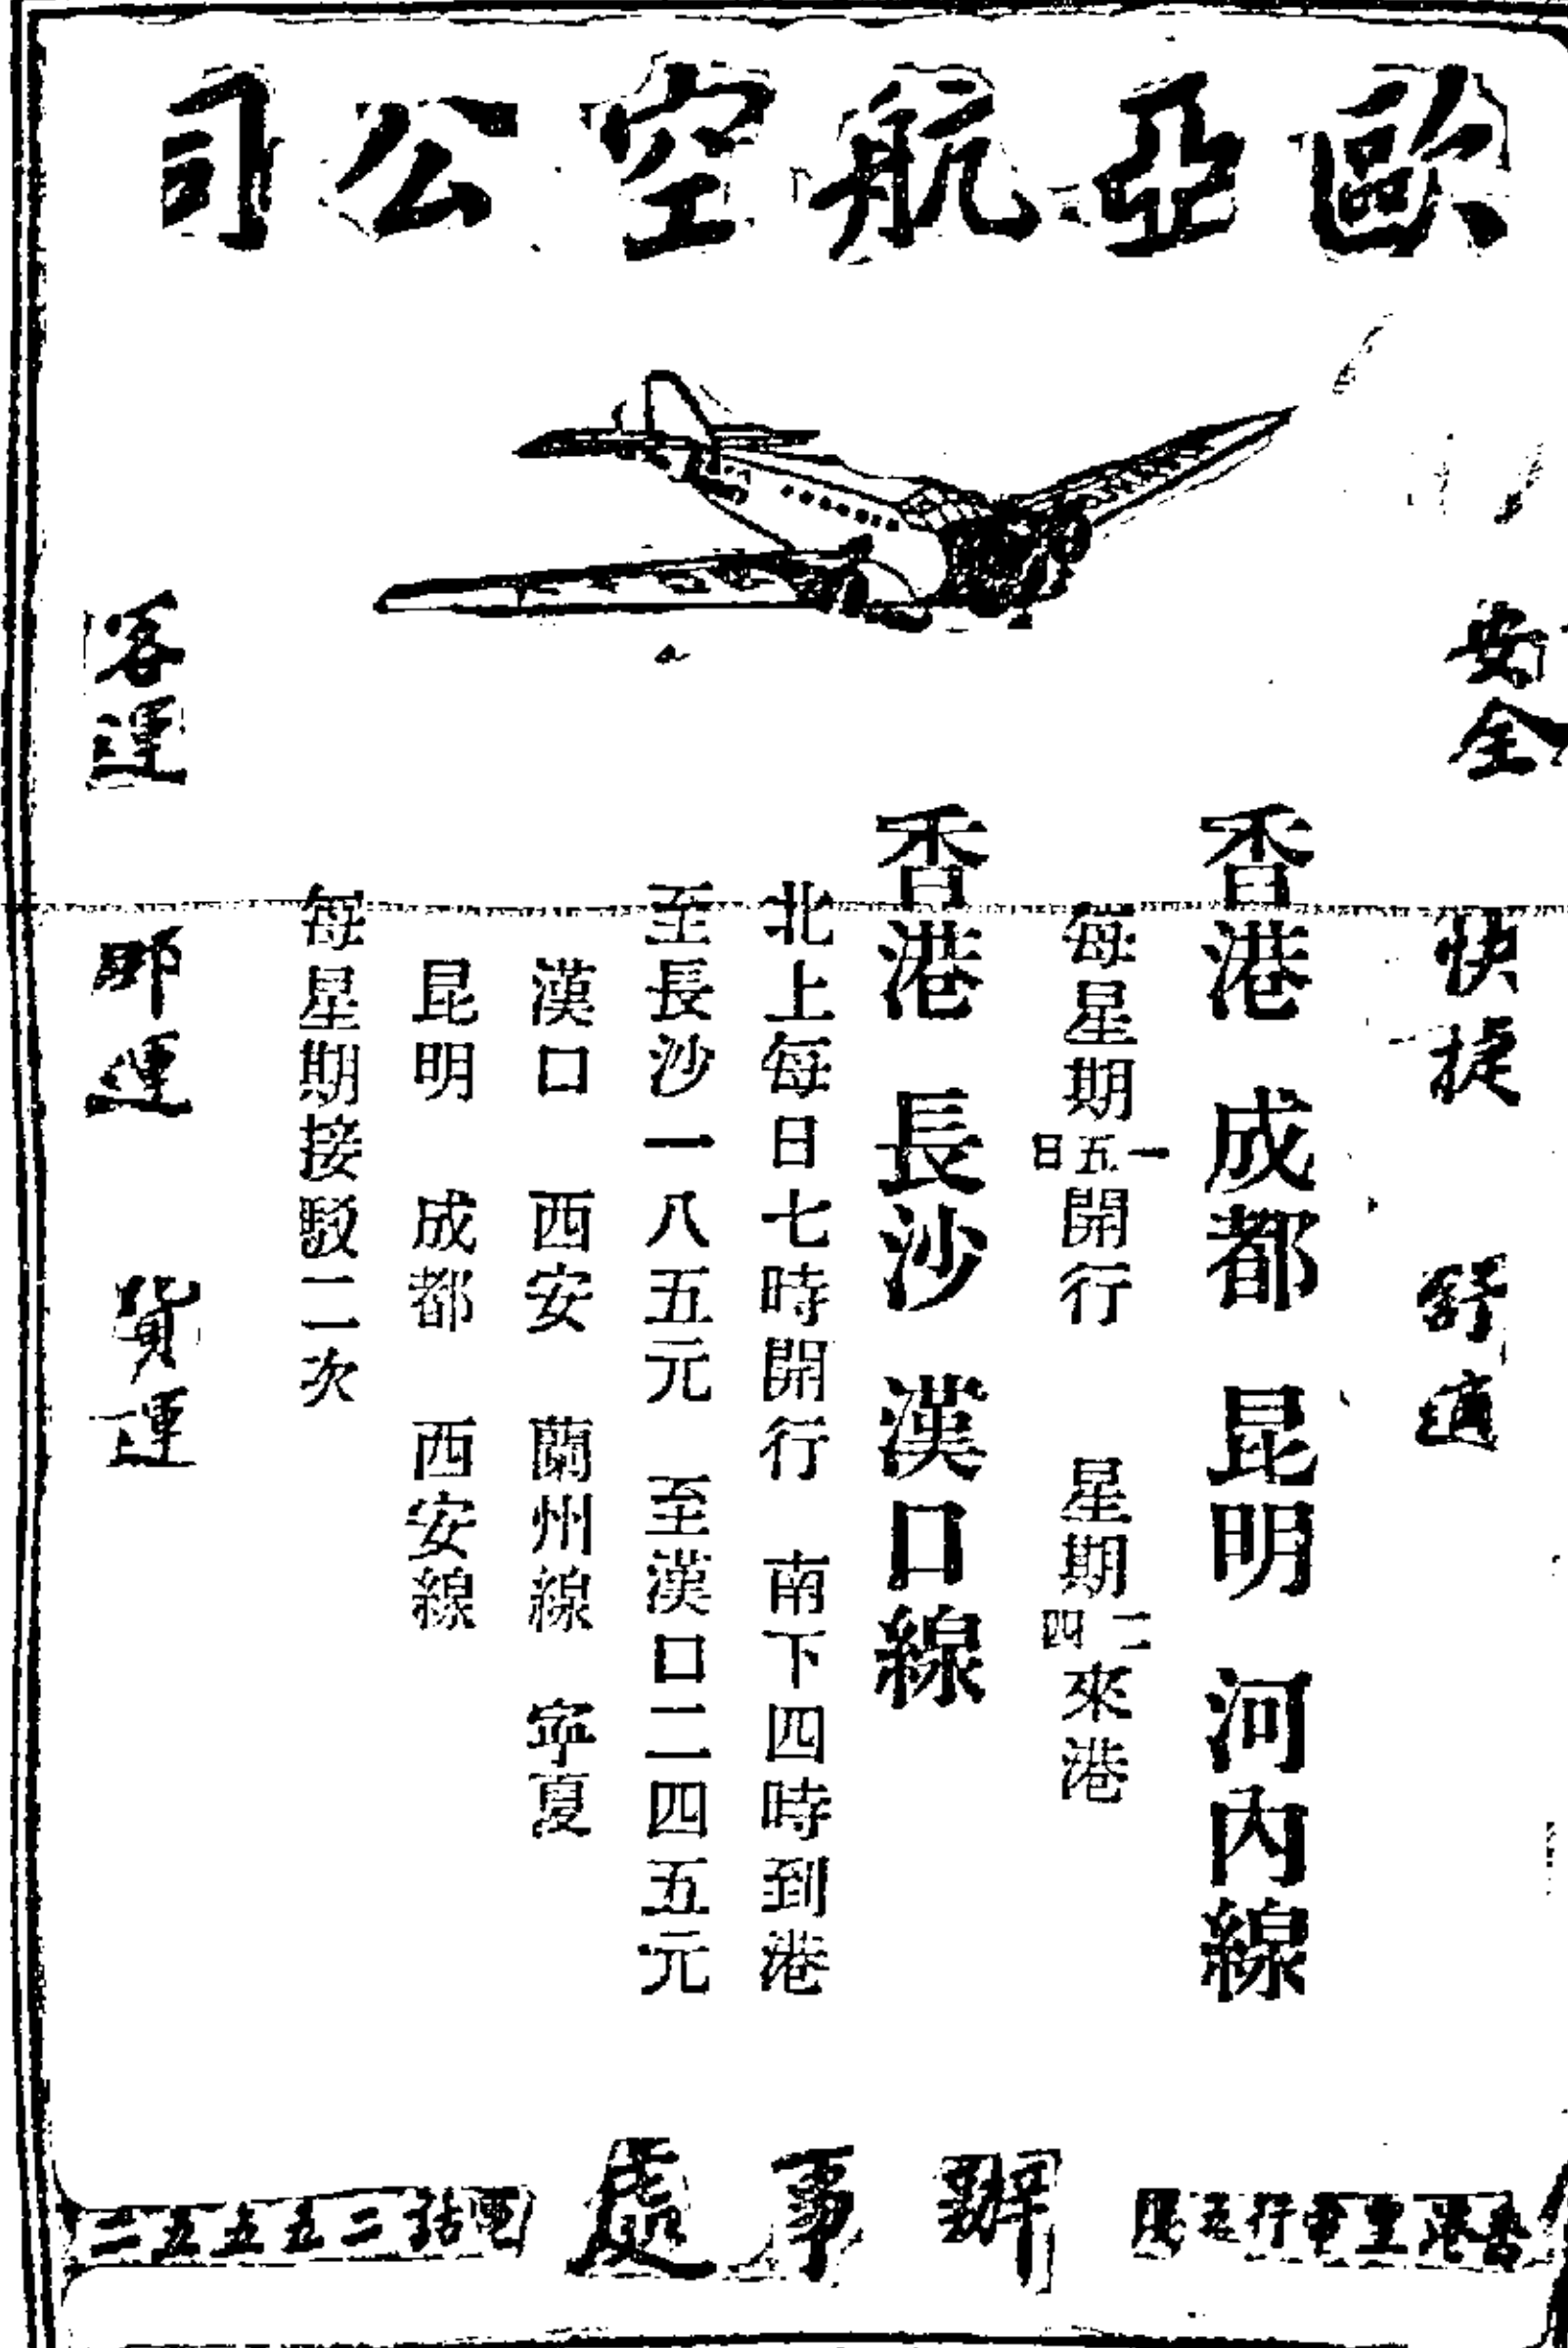 歐亞航空公司
安全 快捷 舒適
香港 成都 昆明 河內線
每星期一五日開行 星期二四來港
香港 長沙 漢口線
北上每日七時開行 南下四時到港
至長沙一八五元 至漢口二四五元
漢口 西安 蘭州線 寧夏
昆明 成都 西安線
每星期接駁二次
客運 郵運 貨運
香港皇帝行五樓
辦事處
電話二五五五二